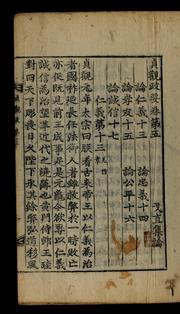 貞觀政要卷第五
戈直集論
論仁義十三 論忠義十四
論孝友十五 論公平十六
論誠信十七
仁義第十三 凡四章
貞觀元年太宗曰朕看古來帝王以仁義為治
者國祚延長任法御人者雖救弊於一時敗亡
亦促既見前王成事足是元龜今欲專以仁義
誠信為治望革近代之澆薄也黃門侍郎王珪
對曰天下彫喪日久陛下承其餘弊弘道移風